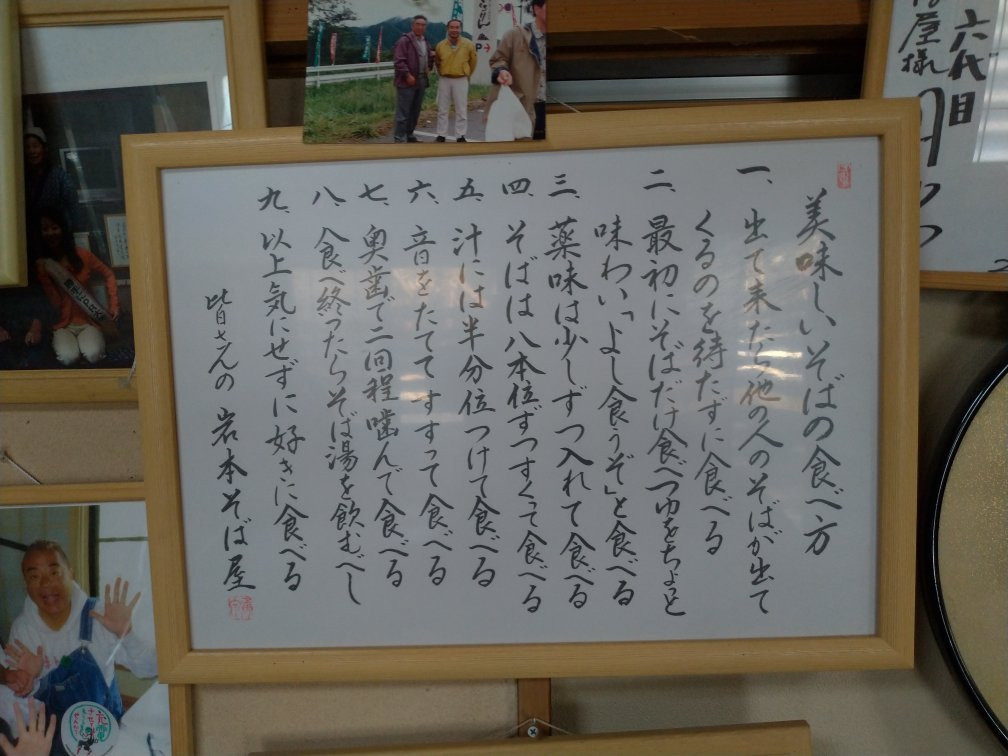 美味しいそばの食べ方
一、出て来たら他の人のそばが出て
くるのを待たずに食べる
二、最初にそばだけ食べつゆをちょっと
味わい「よし食うぞ」と食べる
三、薬味は少しずつ入れて食べる
四、そばは八本位ずつすくって食べる
五、汁には半分位つけて食べる
六、音をたててすすって食べる
七、奥歯で二回程噛んで食べる
八、食べ終ったらそば湯を飲むべし
九、以上気にせずに好きに食べる
皆さんの 岩本そば屋
六代目
屋様